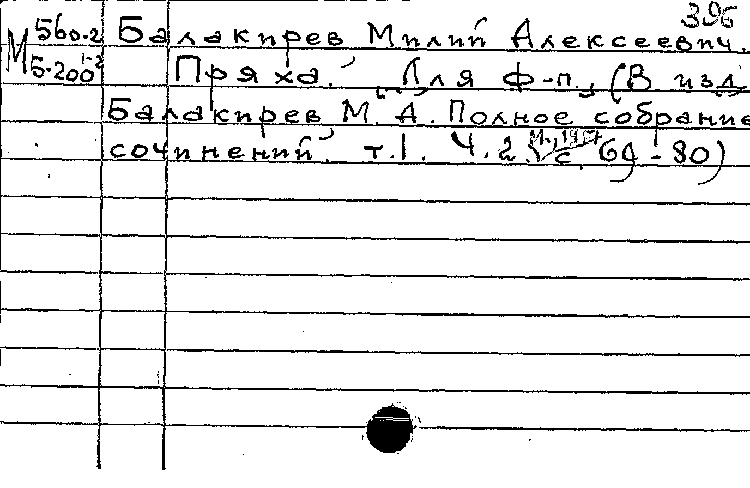 396
М 560-2 Балакирев Милий Алексеевич.
5-200 1-2 Пряха. Для ф-п. (В изд.
Балакирев М. А. Полное собрание
сочинений. т.1. Ч.2. М., с. 69-80)